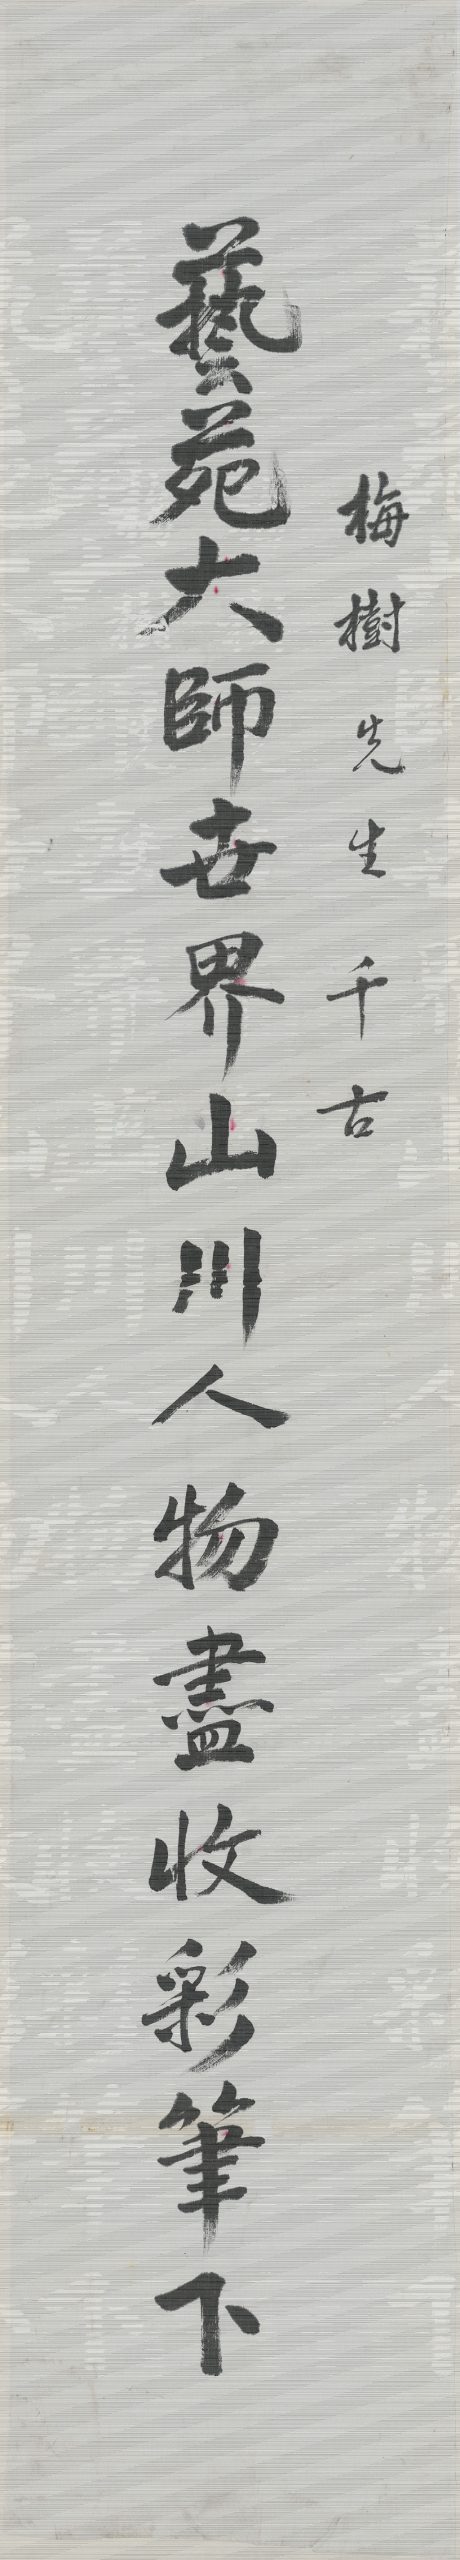 梅樹先生千古
藝苑大師世界山川人物盡收彩筆下